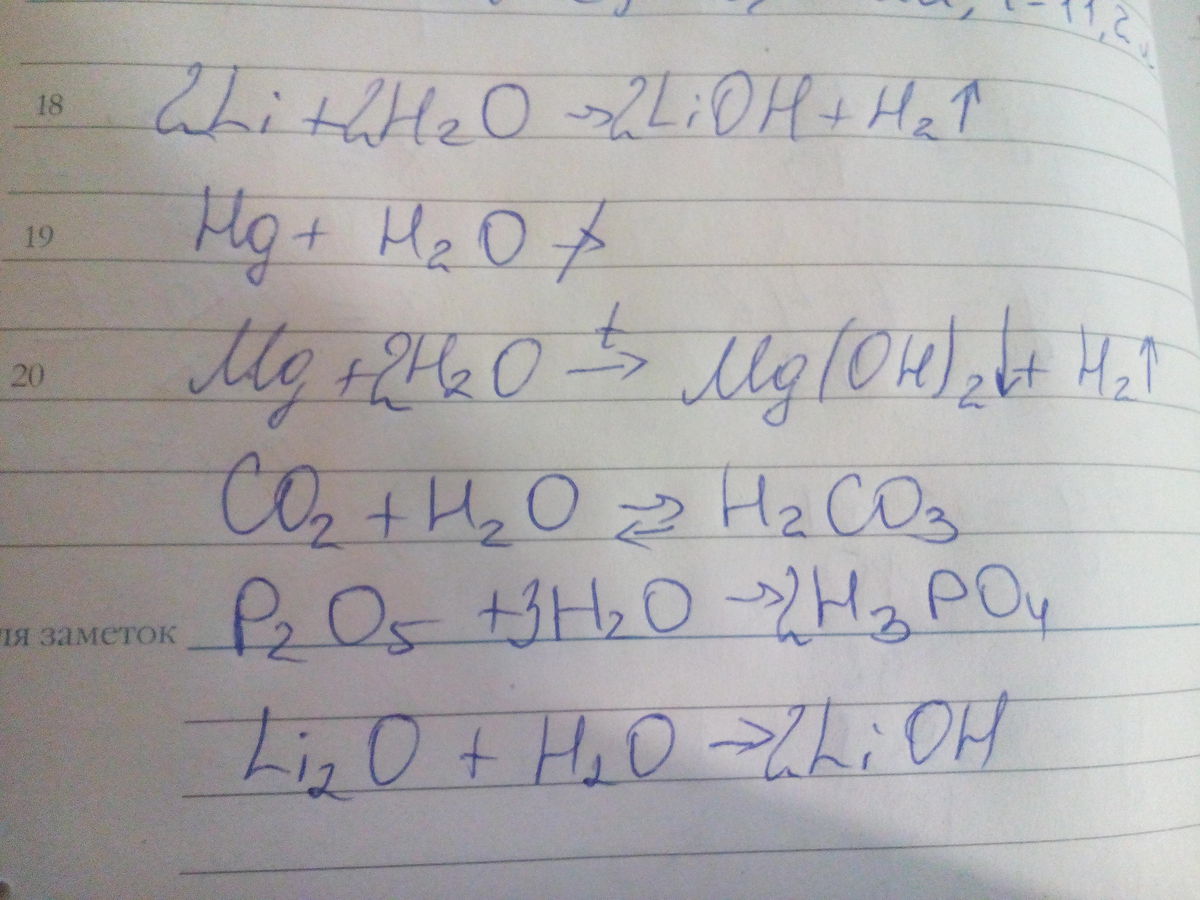 18 2Li + 2H₂O → 2LiOH + H₂↑
19 Hg + H₂O ↛
20 Mg + 2H₂O →ᵗ Mg(OH)₂↓ + H₂↑
CO₂ + H₂O ⇄ H₂CO₃
ля заметок P₂O₅ + 3H₂O → 2H₃PO₄
Li₂O + H₂O → 2LiOH